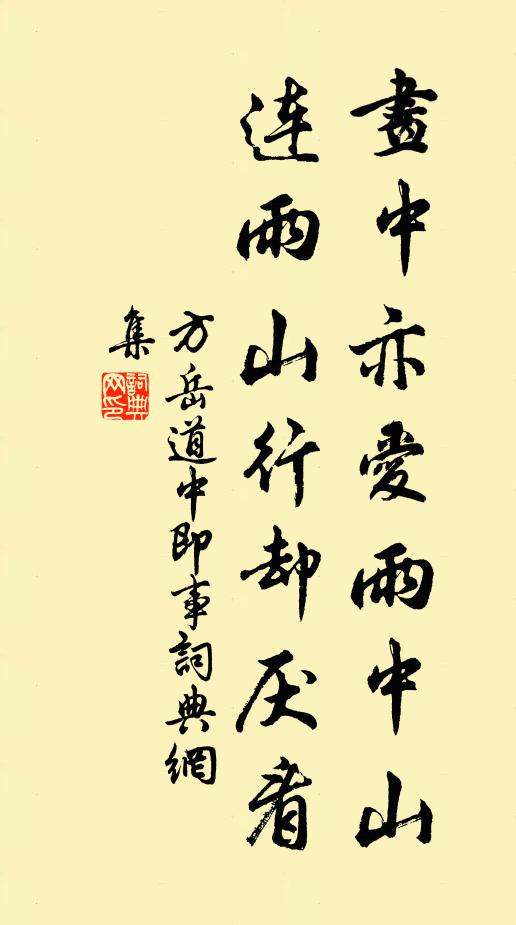 畫中亦愛雨中山
連雨山行却厌看
方岳道中即事詞典網
集
詞典
网印